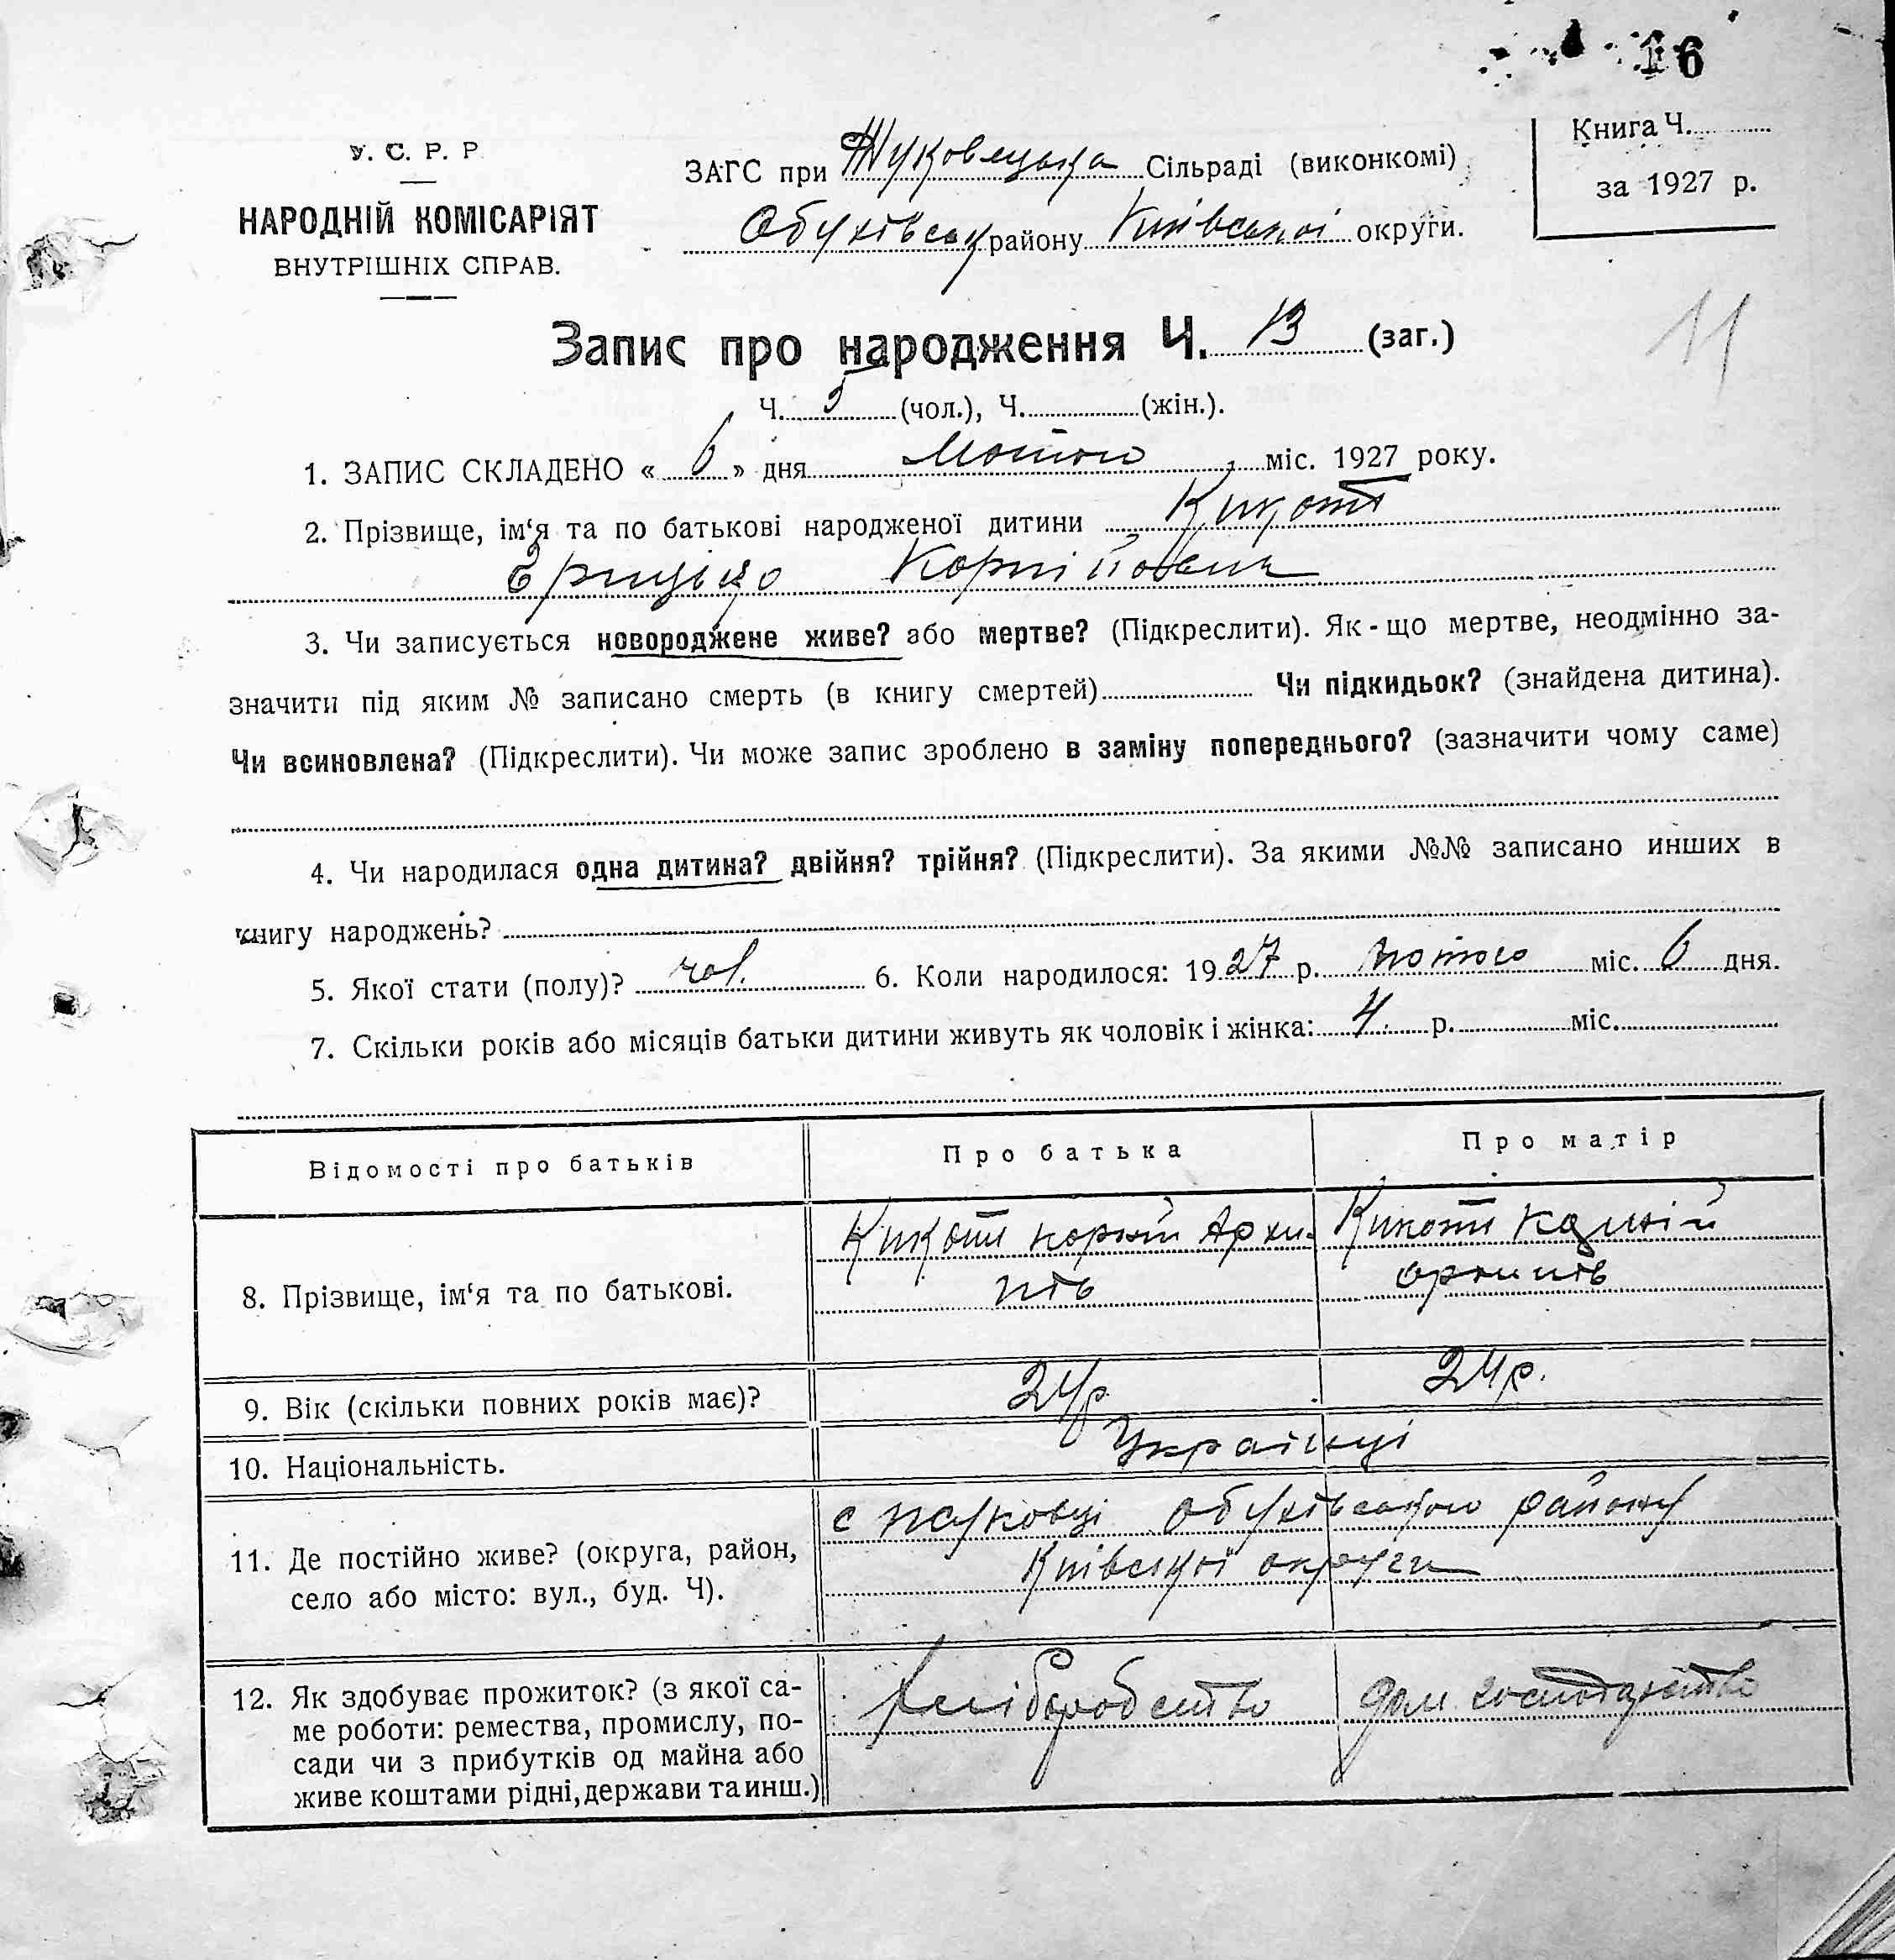 16
Книга Ч.
за 1927 р.
У. С. Р. Р
НАРОДНІЙ КОМІСАРІЯТ
ВНУТРІШНІХ СПРАВ.
ЗАГС при Жуковецька Сільраді (виконкомі)
Обухівськ району Київської округи.
11
Запис про народження Ч. 13 (заг.)
Ч. 5 (чол.), Ч. (жін.).
1. ЗАПИС СКЛАДЕНО « 6 » дня Лютого міс. 1927 року.
2. Прізвище, ім‘я та по батькові народженої дитини Кикоть
Грицько Корнійович
3. Чи записується новороджене живе? або мертве? (Підкреслити). Як-що мертве, неодмінно за-
значити під яким № записано смерть (в книгу смертей) Чи підкидьок? (знайдена дитина).
Чи всиновлена? (Підкреслити). Чи може запис зроблено в заміну попереднього? (зазначити чому саме)
4. Чи народилася одна дитина? двійня? трійня? (Підкреслити). За якими №№ записано инших в
книгу народжень?
5. Якої стати (полу)? чол. 6. Коли народилося: 1927 р. Лютого міс. 6 дня.
7. Скільки років або місяців батьки дитини живуть як чоловік і жінка: 4 р. міс.
Відомості про батьків Про батька Про матір
8. Прізвище, ім‘я та по батькові. Кикоть Корній Архи- Кикоть
пів
9. Вік (скільки повних років має)? 24р 24р.
10. Національність. Українці
11. Де постійно живе? (округа, район, село або місто: вул., буд. Ч). с Жуковці Обухівського району
Київської округи
12. Як здобуває прожиток? (з якої са-
ме роботи: ремества, промислу, по-
сади чи з прибутків од майна або
живе коштами рідні, держави та инш.) хліборобство дом господарство